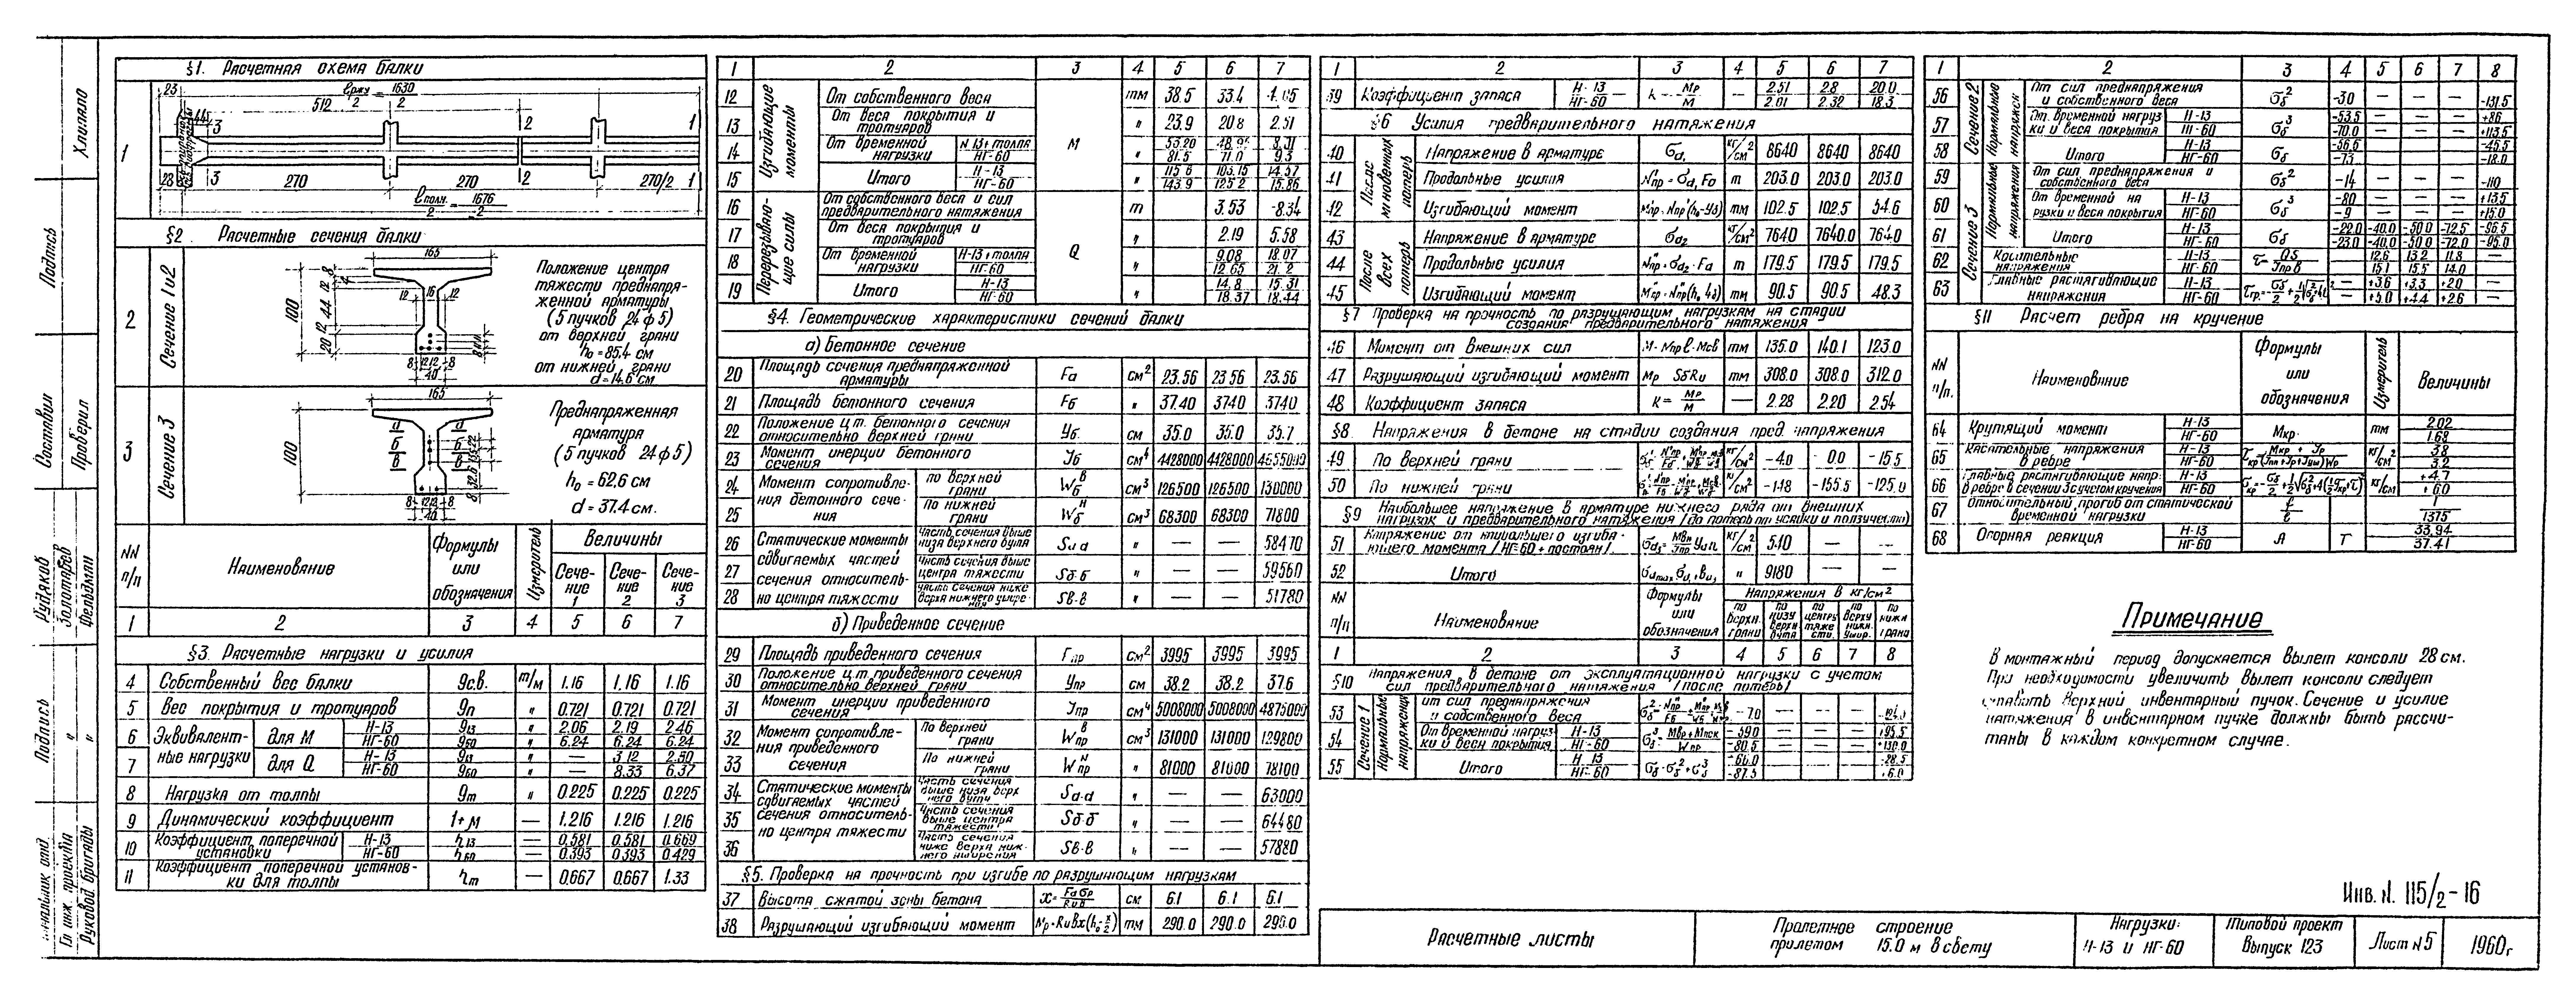 §1. Расчетная схема балки
23
ℓржу/2 = 1630/2
512
44
3
2
1
1
28
3
270
270
2
270/2
1
ℓполн./2 = 1676/2
§2. Расчетные сечения балки
2
Сечение 1и2
165
100
Положение центра
тяжести преднапря-
женной арматуры
(5 пучков 24ф5)
от верхней грани
h₀ = 85.4 см
от нижней грани
d = 14.6 см
3
Сечение 3
165
100
Преднапряженная
арматура
(5 пучков 24ф5)
h₀ = 62.6 см
d = 37.4 см.
NN п/п
Наименование
Формулы или обозначения
Измеритель
Величины
Сече-ние 1
Сече-ние 2
Сече-ние 3
1 2 3 4 5 6 7
§3. Расчетные нагрузки и усилия
4 Собственный вес балки qс.в. т/м 1.16 1.16 1.16
5 Вес покрытия и тротуаров qп " 0.721 0.721 0.721
6 Эквивалент- для М Н-13 q13 " 2.06 2.19 2.46
НГ-60 q60 6.24 6.24 6.24
7 ные нагрузки для Q Н-13 q13 " — 3.12 2.50
НГ-60 q60 8.33 6.37
8 Нагрузка от толпы qт " 0.225 0.225 0.225
9 Динамический коэффициент 1+М — 1.216 1.216 1.216
10 Коэффициент поперечной установки Н-13 h13 — 0.581 0.581 0.669
НГ-60 h60 — 0.393 0.393 0.429
11 Коэффициент поперечной установ-
ки для толпы hт — 0.667 0.667 1.33
1 2 3 4 5 6 7
Изгибающие моменты
12 От собственного веса М тм 38.5 33.4
13 От веса покрытия и тротуаров " 23.9 20.8 2.51
14 От временной нагрузки Н-13+толпа " 53.20
НГ-60 81.5 71.0 9.3
15 Итого Н-13 " 115.6 103.15 14.57
НГ-60 143.9 125.2 15.86
Перерезываю-щие силы
16 От собственного веса и сил
предварительного натяжения Q т 3.53 -8.34
17 От веса покрытия и тротуаров " 2.19 5.58
18 От временной нагрузки Н-13+толпа " 9.08 18.07
НГ-60 12.65 21.2
19 Итого Н-13 " 14.8 15.31
НГ-60 18.37 18.44
§4. Геометрические характеристики сечений балки
а) Бетонное сечение
20 Площадь сечения преднапряженной
арматуры Fа см² 23.56 23.56 23.56
21 Площадь бетонного сечения Fб " 37.40 3740 3740
22 Положение ц.т. бетонного сечения
относительно верхней грани Уб. см 35.0 35.0 35.7
23 Момент инерции бетонного
сечения Jб см⁴ 4428000 4428000
24 Момент сопротивле-ния бетонного сече-ния по верхней грани Wбᴮ см³ 126500 126500 130000
25 по нижней грани Wбᴴ см³ 68300 68300 71800
26 Статические моменты сдвигаемых частей сечения относитель-но центра тяжести
часть сечения выше низа верхнего вута Sа-а " — — 58470
27 часть сечения выше центра тяжести Sб-б " — — 59560
28 часть сечения ниже верха нижнего ушире-ния Sв-в " — — 51780
б) Приведенное сечение
29 Площадь приведенного сечения Fпр см² 3995 3995 3995
30 Положение ц.т. приведенного сечения
относительно верхней грани Упр см 38.2 38.2 37.6
31 Момент инерции приведенного
сечения Jпр см⁴ 5008000 5008000 4875000
32 Момент сопротивле-ния приведенного сечения по верхней грани Wпрᴮ см³ 131000 131000 129800
33 По нижней грани Wпрᴴ " 81000 81000 78100
34 Статические моменты сдвигаемых частей сечения относитель-но центра тяжести
Часть сечения выше низа верх-него вута Sа-а " — — 63000
35 Часть сечения выше центра тяжести Sб-б " — — 64480
36 Часть сечения ниже верха ниж-него уширения Sв-в " — — 57880
§5. Проверка на прочность при изгибе по разрушающим нагрузкам
37 Высота сжатой зоны бетона x = Fаσр/Rив см 6.1 6.1 6.1
38 Разрушающий изгибающий момент Мр=Rивx(h₀-x/2) тм 290.0 290.0
1 2 3 4 5 6 7
39 Коэффициент запаса Н-13 k = Мр/М — 2.51 2.8 20.0
НГ-60 2.01 2.32 18.3
§6 Усилия предварительного натяжения
После мгновенных потерь
40 Напряжение в арматуре σd₁ кг/см² 8640 8640 8640
41 Продольные усилия N'пр = σd₁ Fа т 203.0 203.0 203.0
42 Изгибающий момент тм 102.5 102.5 54.6
После всех потерь
43 Напряжение в арматуре σd₂ кг/см² 7640 7640.0 7640
44 Продольные усилия N"пр = σd₂·Fа т 179.5 179.5 179.5
45 Изгибающий момент тм 90.5 90.5 48.3
§7 Проверка на прочность по разрушающим нагрузкам на стадии
создания предварительного натяжения
46 Момент от внешних сил тм 135.0 140.1 123.0
47 Разрушающий изгибающий момент Мр SбRи тм 308.0 308.0 312.0
48 Коэффициент запаса К = Мр/М — 2.28 2.20 2.54
§8. Напряжения в бетоне на стадии создания пред. напряжения
49 По верхней грани кг/см² -4.0 0.0 -15.5
50 По нижней грани кг/см² -148 -155.5 -125.0
§9 Наибольшее напряжение в арматуре нижнего ряда от внешних
нагрузок и предварительного натяжения /до потерь от усадки и ползучести/
51 Напряжение от наибольшего изгиба-
ющего момента /НГ-60+постоян/. кг/см² 540 — —
52 Итого " 9180 — —
NN п/п
Наименование
Формулы или обозначения
Напряжения в кг/см²
по верхн. грани
по низу верхн вута
по центру тяже сти.
по верху нижн. ушир.
по нижн грани
1 2 3 4 5 6 7 8
§10 Напряжения в бетоне от эксплуатационной нагрузки с учетом
сил предварительного натяжения /после потерь/
Сечение 1
Нормальные напряжения
53 От сил преднапряжения
и собственного веса -7.0 — — —
54 От временной нагруз-ки и веса покрытия Н-13 -59.0 — — — +95.5
НГ-60 -80.5 — — — +130.0
55 Итого Н-13 σб=σб²+σб³ -66.0 — — — -28.5
НГ-60 -87.5 — — — +6.0
1 2 3 4 5 6 7 8
Сечение 2
Нормальные напряжен
56 От сил преднапряжения
и собственного веса σб² -3.0 — — — -131.5
57 От временной нагруз-ки и веса покрытия Н-13 σб³ -53.5 — — — +86
НГ-60 -70.0 — — — +113.5
58 Итого Н-13 σб -56.5 — — — -45.5
НГ-60 -73 — — — -18.0
Сечение 3
Нормальные напряжения
59 От сил преднапряжения и
собственного веса σб² -14 -110
60 От временной на грузки и веса покрытия Н-13 σб³ -80 — — — +13.5
НГ-60 -9 — — — +15.0
61 Итого Н-13 σб -22.0 -40.0 -50.0 -72.5 -96.5
НГ-60 -23.0 -40.0 -50.0 -72.0 -95.0
62 Касательные напряжения Н-13 τ = QS/Jпрв — 12.6 13.2 11.8 —
НГ-60 — 15.1 15.5 14.0 —
63 Главные растягивающие напряжения Н-13 — +3.6 +3.3 +2.0 —
НГ-60 — +5.0 +4.4 +2.6 —
§11 Расчет ребра на кручение
NN п/п.
Наименование
Формулы или обозначения
Измеритель
Величины
64 Крутящий момент Н-13 Мкр. тм 2.02
НГ-60 1.68
65 Касательные напряжения
в ребре Н-13 кг/см² 3.8
НГ-60 3.2
66 Главные растягивающие напр.
в ребре в сечении 3 с учетом кручения Н-13 кг/см +4.7
НГ-60 +6.0
67 Относительный прогиб от статической
временной нагрузки f/ℓ 1/1375
68 Опорная реакция Н-13 А т 33.94
НГ-60 37.41
Примечание
В монтажный период допускается вылет консоли 28 см.
При необходимости увеличить вылет консоли следует
ставить верхний инвентарный пучок. Сечение и усилие
натяжения в инвентарном пучке должны быть рассчи-
таны в каждом конкретном случае.
Инв. N. 115/2-16
Расчетные листы
Пролетное строение
пролетом 15.0 м в свету
Нагрузки:
Н-13 и НГ-60
Типовой проект
Выпуск 123
Лист N 5
1960г
Хлипало
Подпись
Составил
Проверил
Рудяков
Золотарев
Фельдман
Подпись
"
"
Начальник отд
Гл инж. проекта
Руковод. бригады